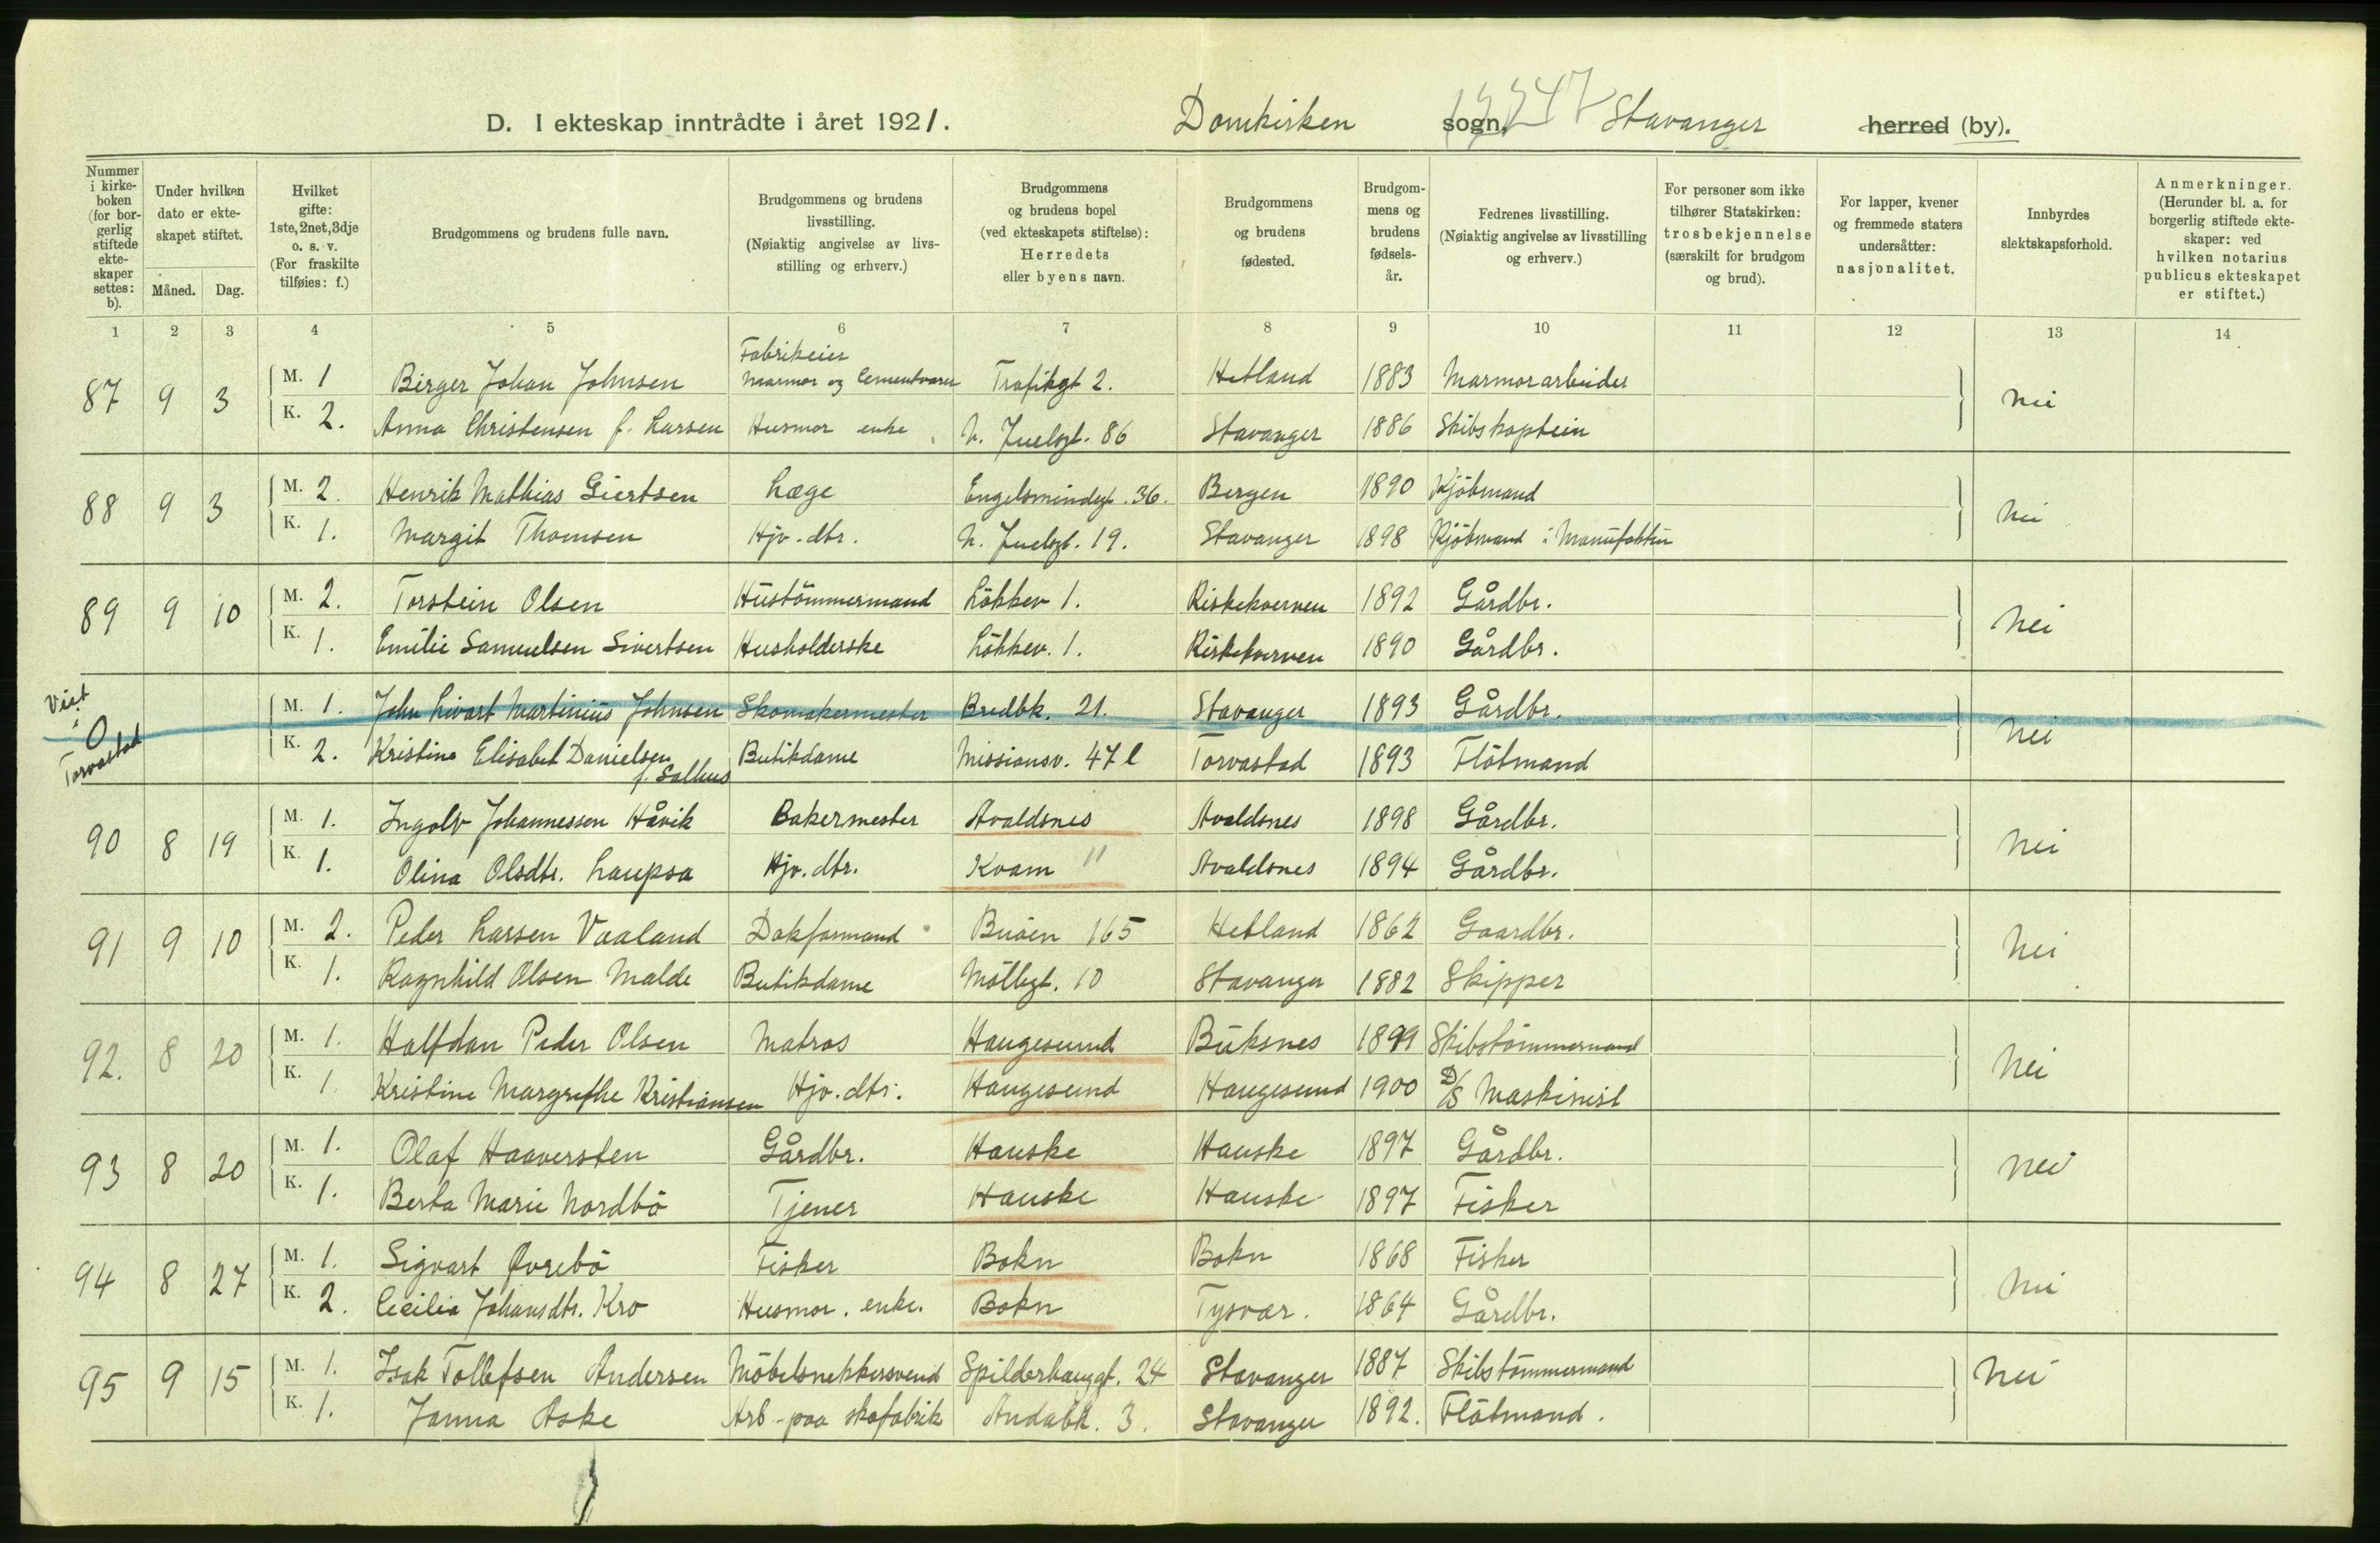 D. I ekteskap inntrådte i året 1921. Domkirken sogn. Stavanger herred (by).
Nummer i kirkeboken (for borgerlig stiftede ekteskaper settes: b).
Under hvilken dato er ekteskapet stiftet.
Måned. Dag.
Hvilket gifte: 1ste, 2net, 3dje o. s. v. (For fraskilte tilføies: f.)
Brudgommens og brudens fulle navn.
Brudgommens og brudens livsstilling. (Nøiaktig angivelse av livsstilling og erhverv.)
Brudgommens og brudens bopel (ved ekteskapets stiftelse): Herredets eller byens navn.
Brudgommens og brudens fødested.
Brudgommens og brudens fødselsår.
Fedrenes livsstilling. (Nøiaktig angivelse av livsstilling og erhverv.)
For personer som ikke tilhører Statskirken: trosbekjennelse (særskilt for brudgom og brud).
For lapper, kvener og fremmede staters undersåtter: nasjonalitet.
Innbyrdes slektskapsforhold.
Anmerkninger. (Herunder bl. a. for borgerlig stiftede ekteskaper: ved hvilken notarius publicus ekteskapet er stiftet.)
1 2 3 4 5 6 7 8 9 10 11 12 13 14
87 9 3 M. 1 Birger Johan Johnsen Fabrikeier Marmor og Cementvarer Trafikgt 2. Hetland 1883 Marmorarbeider nei
K. 2. Anna Christensen f. Larsen Husmor enke N. Juelsgt. 86 Stavanger 1886 Skibskaptein
88 9 3 M. 2. Henrik Mathias Giertsen Læge Engelsmindegt. 36. Bergen 1890 Kjöbmand nei
K. 1. Margit Thomsen Hjv. dtr. N. Juelsgt. 19. Stavanger 1898 Kjöbmand i Manufaktur
89 9 10 M. 2. Torstein Olsen Hustömmermand Lökkev 1. Riskekverven 1892 Gårdbr. nei
K. 1. Emilie Samuelsen Sivertsen Husholderske Lökkev. 1. Riskekverven 1890 Gårdbr.
Viet i Torvastad O M. 1. John Sivart Martinius Johnsen Skomakermester Bredbk. 21. Stavanger 1893 Gårdbr. nei
K. 2. Kristine Elisabet Danielsen f. Salhus Butikdame Missionsv. 47 l Torvastad 1893 Flötmand
90 8 19 M. 1. Ingolv Johannessen Håvik Bakermester Avaldsnes Avaldsnes 1898 Gårdbr. nei
K. 1. Olina Olsdtr. Laupsa Hjv. dtr. Kvam " Avaldsnes 1894 Gårdbr.
91 9 10 M. 2. Peder Larsen Vaaland Dokformand Buöen 165 Hetland 1862 Gaardbr. nei
K. 1. Ragnhild Olsen Malde Butikdame Möllegt. 10 Stavanger 1882 Skipper
92. 8 20 M. 1. Halfdan Peder Olsen Matros Haugesund Buksnes 1899 Skibstömmermand nei
K. 1. Kristine Margrethe Kristiansen Hjv. dtr. Haugesund Haugesund 1900 D/S Maskinist
93 8 20 M. 1. Olaf Haaversten Gårdbr. Hauske Hauske 1897 Gårdbr. nei
K. 1. Berta Marie Nordbö Tjener Hauske Hauske 1897 Fisker
94 8 27 M. 1. Sigvart Øvrebö Fisker Bokn Bokn 1868 Fisker nei
K. 2. Cecilia Johansdtr. Kro Husmor. enke. Bokn Tysvær. 1864 Gårdbr.
95 9 15 M. 1. Isak Tollefsen Andersen Möbelsnekkersvend Spilderhauggt. 24 Stavanger 1887 Skibstömmermand nei
K. 1. Janna Aske Arb. paa skofabrik Andabk. 3. Stavanger 1892. Flötmand.